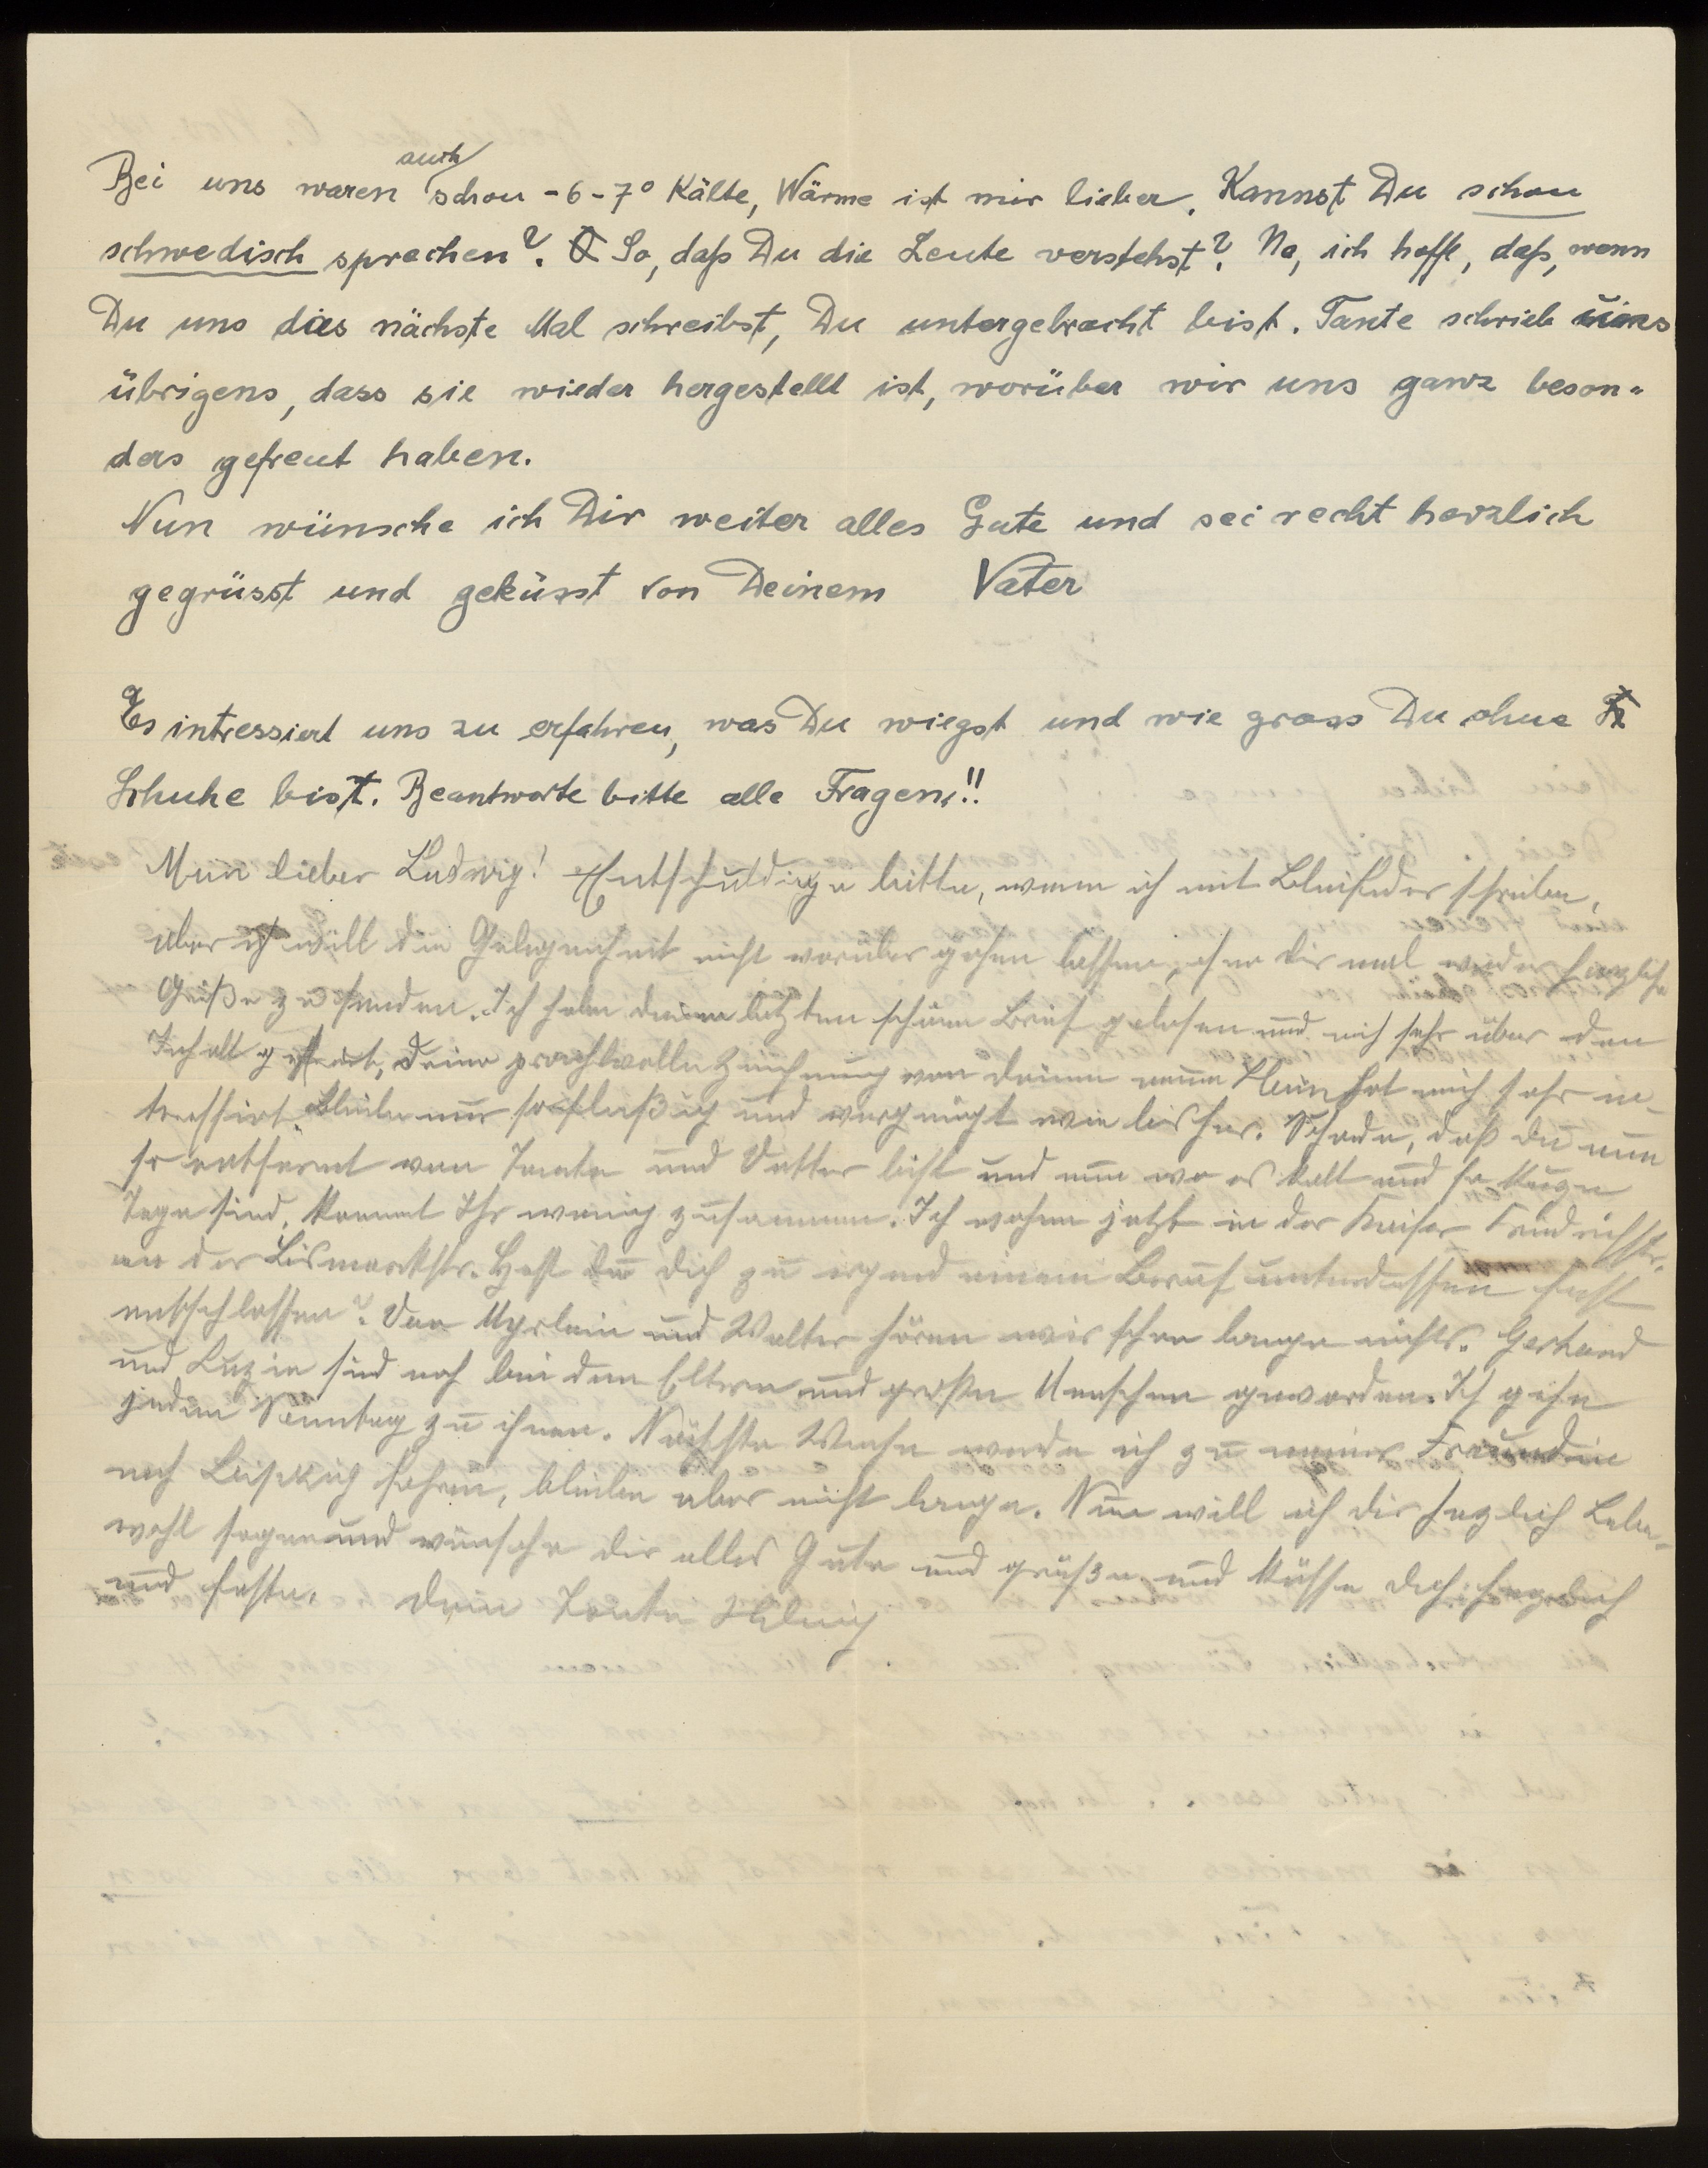 Bei uns waren auch schon -6-7° Kälte, Wärme ist mir lieber. Kannst Du schon
schwedisch sprechen? So, daß Du die Leute verstehst? Na, ich hoffe, daß, wenn
Du uns das nächste Mal schreibst, Du untergebracht bist. Tante schrieb uns
übrigens, dass sie wieder hergestellt ist, worüber wir uns ganz beson-
ders gefreut haben.
Nun wünsche ich Dir weiter alles Gute und sei recht herzlich
gegrüsst und geküsst von Deinem Vater
Es intressiert uns zu erfahren, was Du wiegst und wie gross Du ohne
Schuhe bist. Beantworte bitte alle Fragen!!
Mein lieber Ludwig! Entschuldige bitte, wenn ich mit Bleifeder schreibe,
aber ich will die Gelegenheit nicht vorüber gehen lassen, ohne dir mal wieder herzliche
Grüße zu senden. Ich habe deinen letzten schönen Brief gelesen und mich sehr über den
Inhalt gefreut, deine prachtvolle Zeichnung von deinem neuen Heim hat mich sehr in-
tressirt. Bleibe nur so fleißig und vergnügt wie bisher. Schade, daß du nun
so entfernt von Tante und Vetter bist und nun wo es kalt und so kurze
Tage sind, kommt Ihr wenig zusammen. Ich wohne jetzt in der Kaiser Friedrichstr.
an der Bismarckstr. Hast du dich zu irgend einem Beruf unterdessen fest
entschlossen? Von und Walter hören wir schon lange nichts. Gerhard
und Luzie sind noch bei den Eltern und große Menschen geworden. Ich gehe
jeden Sonntag zu ihnen. Nächste Woche werde ich zu meiner Freundin
nach Leipzig fahren, bleibe aber nicht lange. Nun will ich dir herzlich Lebe-
wohl sagen und wünsche dir alles Gute und grüße und küsse dich herzlich
und feste. Dein Tante